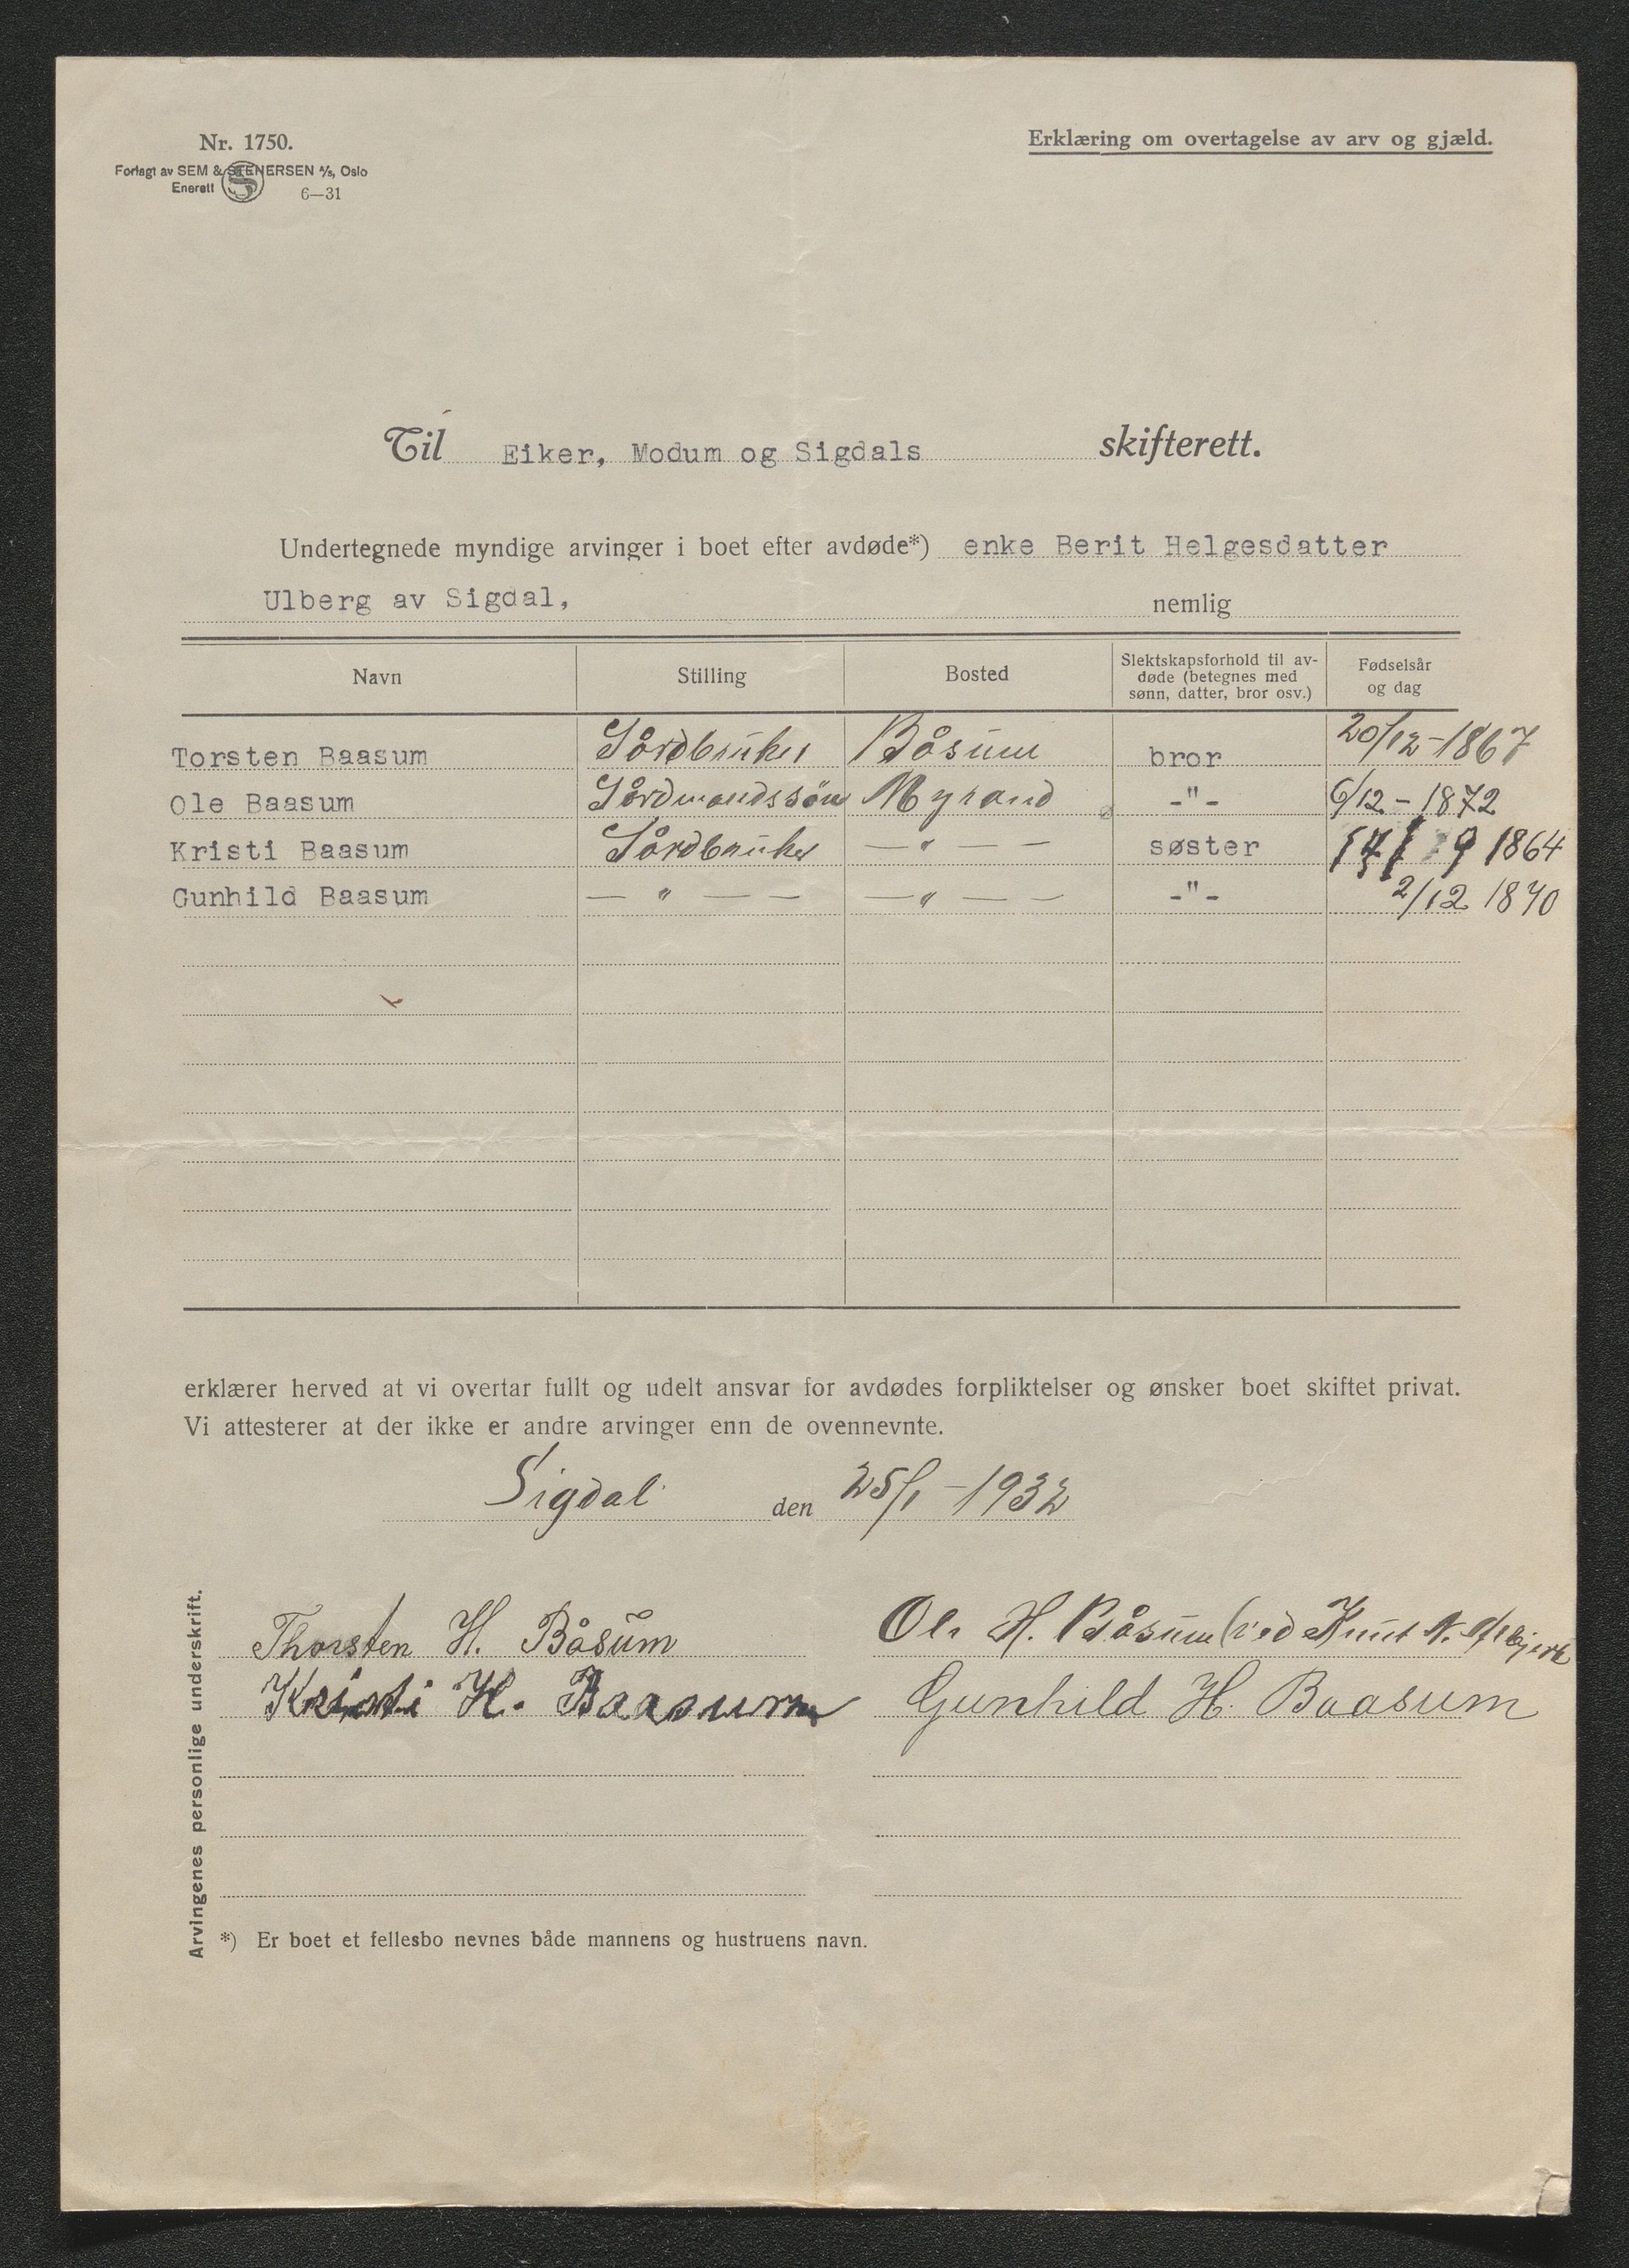 Nr. 1750.
Erklæring om overtagelse av arv og gjæld.
Forlagt av SEM & STENERSEN A/S, Oslo
Enerett
6—31
Til Eiker, Modum og Sigdals skifterett.
Undertegnede myndige arvinger i boet efter avdøde*) enke Berit Helgesdatter
Ulberg av Sigdal, nemlig
Navn Stilling Bosted Slektskapsforhold til avdøde (betegnes med sønn, datter, bror osv.) Fødselsår og dag
Torsten Baasum Gårdbruker Båsum bror 20/12-1867
Ole Baasum Gårdmandssön Myrand -"- 6/12-1872
Kristi Baasum Gårdbruker —"— — søster 14/9 1864
Gunhild Baasum —"— — —"— — -"- 2/12 1870
erklærer herved at vi overtar fullt og udelt ansvar for avdødes forpliktelser og ønsker boet skiftet privat.
Vi attesterer at der ikke er andre arvinger enn de ovennevnte.
Sigdal den 25/1-1932
Arvingenes personlige underskrift.
Thorsten H. Båsum Ole H. Båsum (ved Knut N.
Kristi H. Baasum Gunhild H. Baasum
*) Er boet et fellesbo nevnes både mannens og hustruens navn.